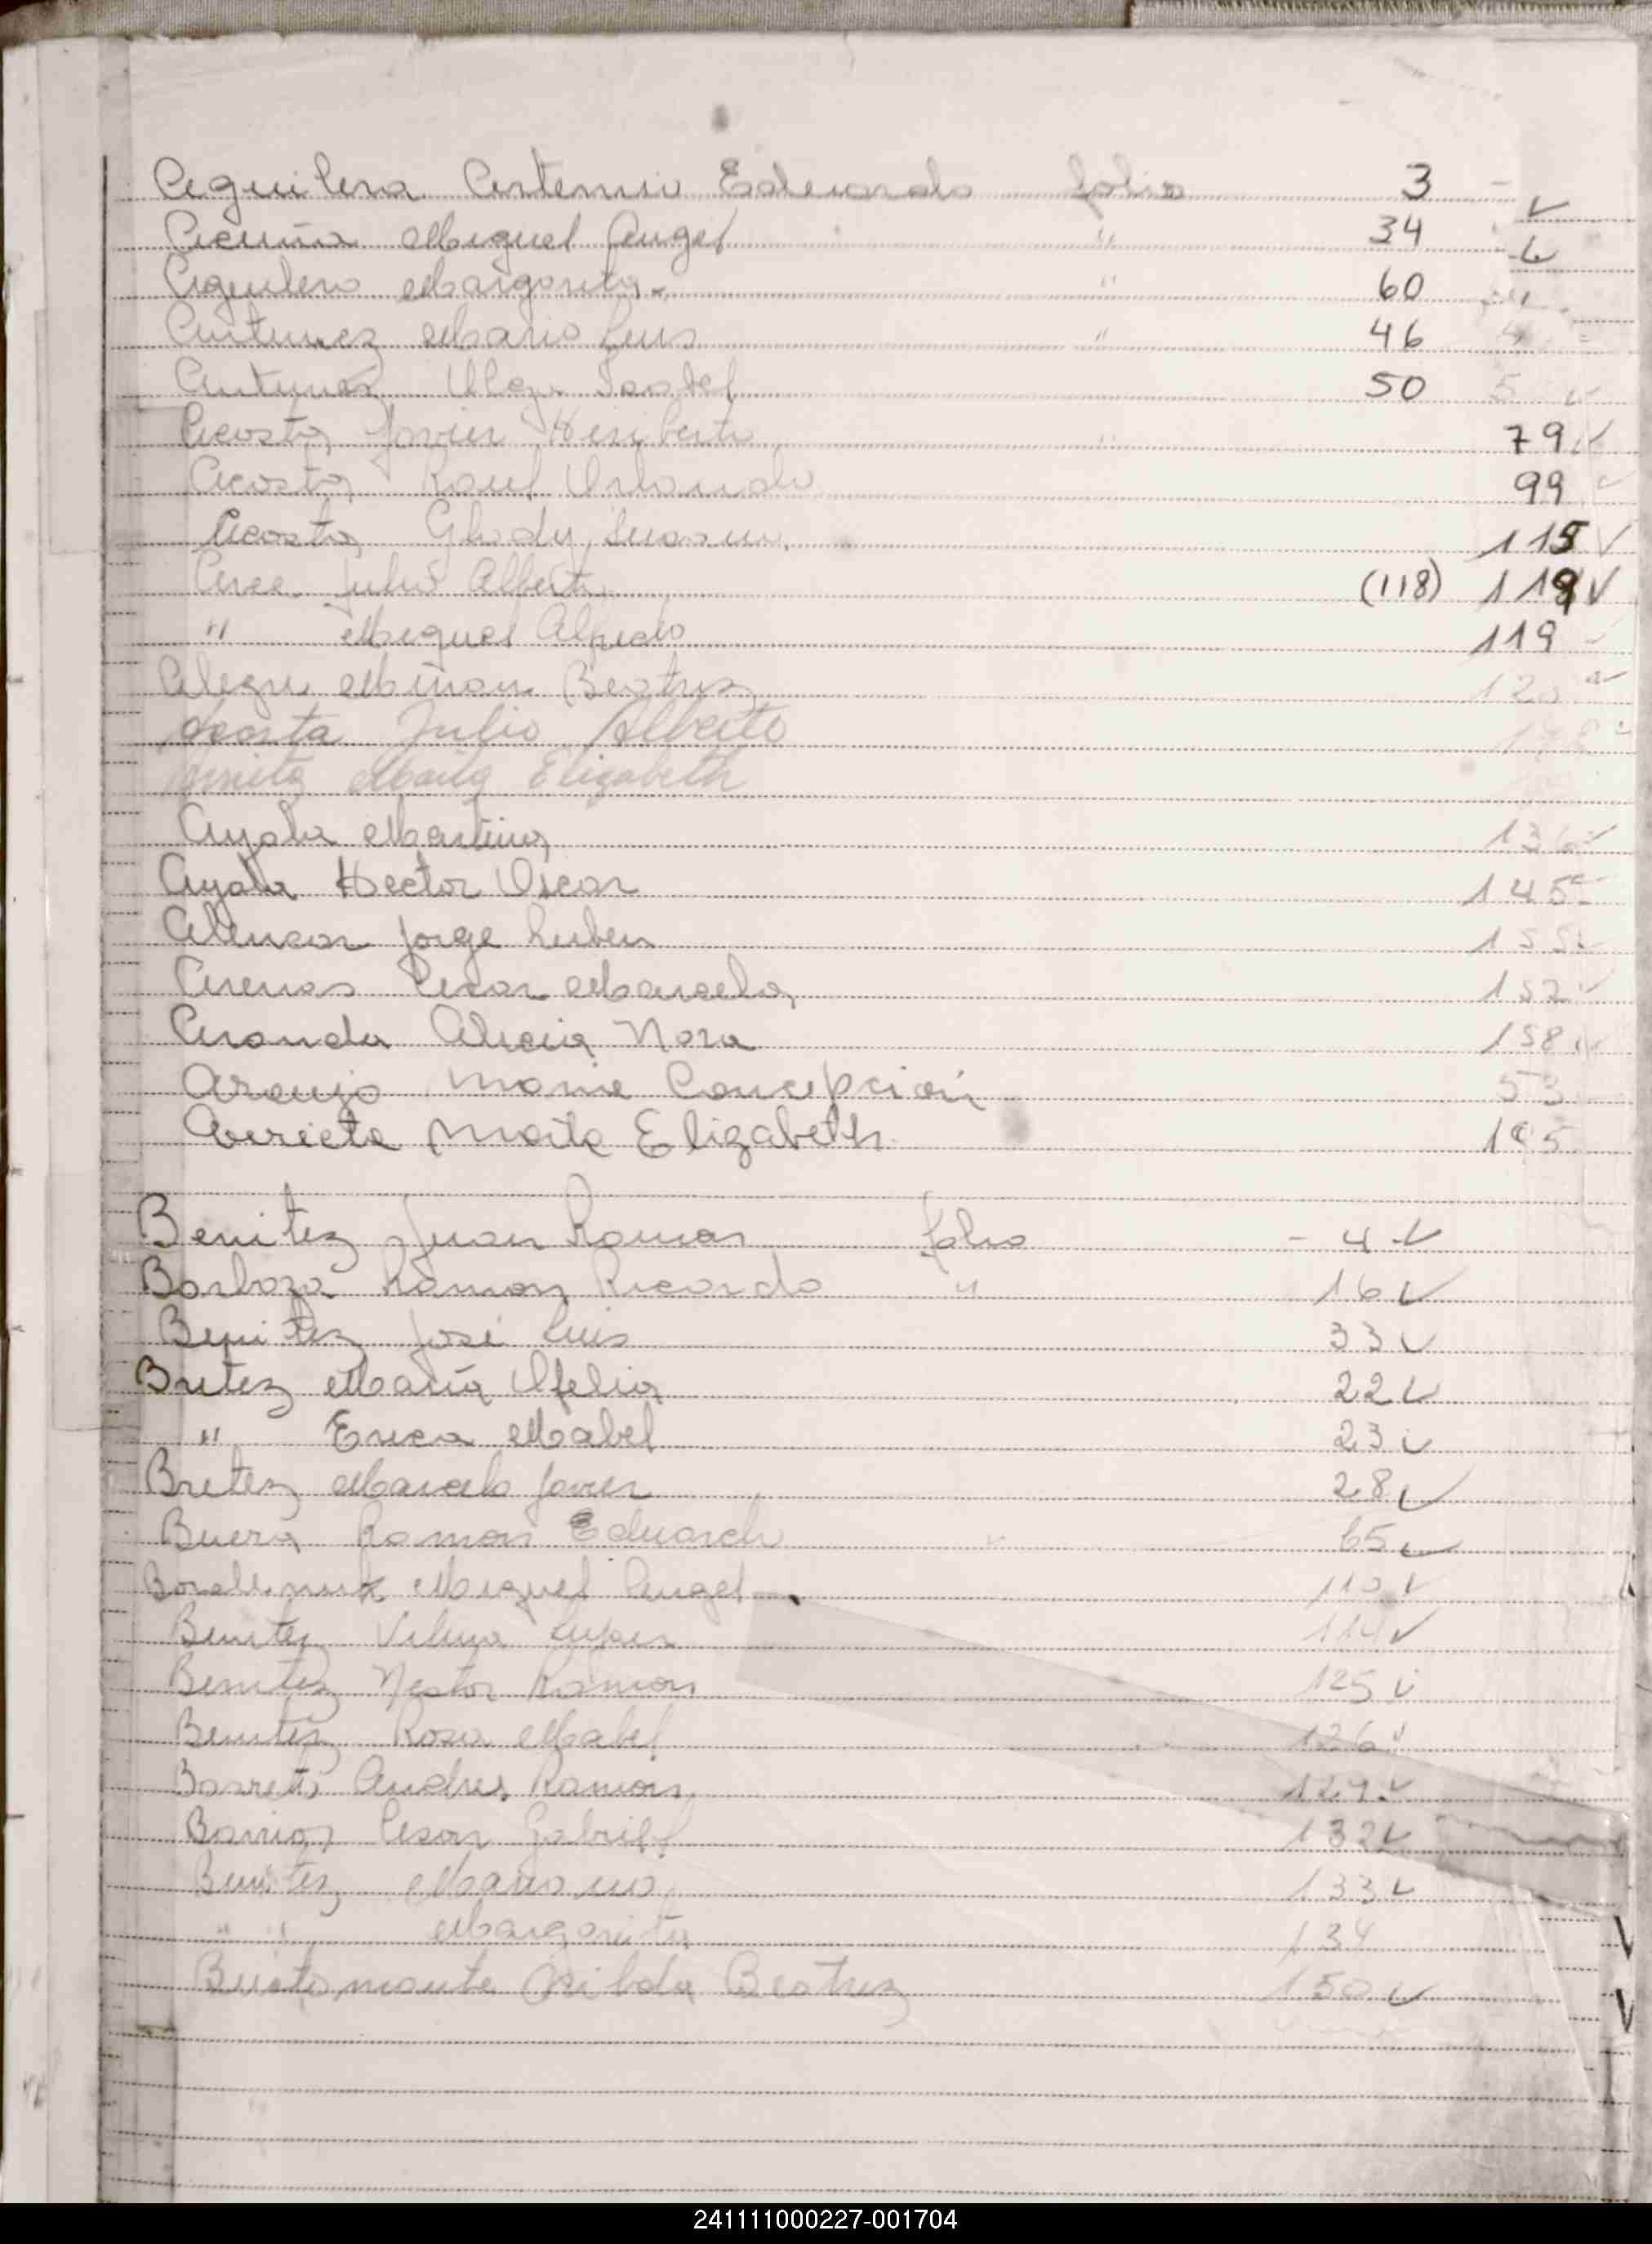 Aguilera Artemio Eduardo folio 3 - ✓
Acuña Miguel Angel " 34 ✓
Aguilera Margarita - " 60
Antunez Mario Luis " 46
Antunez Olga Isabel 50 5 ✓
Acosta Javier Heriberto " 79 ✓
Acosta Raul Orlando 99 ✓
Acosta Glady Susana 115 ✓
Arce Julio Alberto (118) 118 ✓
" Miguel Alfredo 119 ✓
Alegre Mirian Beatriz 120 ✓
Acosta Julio Alberto
Maria Elizabeth
Ayala Martina 136 ✓
Ayala Hector Oscar 145 ✓
Jorge Ruben 155 ✓
Arenas Cesar Marcelo 152 ✓
Aranda Alicia Nora 158 ✓
Araujo Maria Concepción 53
Arrieta Marta Elizabeth 195
Benitez Juan Ramon folio - 4 ✓
Barboza Ramon Ricardo " 16 ✓
Benitez José Luis 33 ✓
Britez Maria Ofelia 22 ✓
" Erica Mabel 23 ✓
Britez Marcelo Javier 28 ✓
Buera Ramon Eduardo 65 ✓
Miguel Angel 110 ✓
Benitez Vilma 114 ✓
Benitez Nestor Ramon 125 ✓
Benitez Rosa Mabel 126 ✓
Barreto Andres Ramon 129 ✓
Barrios Cesar Gabriel 132 ✓
Benitez Mariano 133 ✓
" " Margarita 134
Bustamante Nilda Beatriz 150 ✓
241111000227-001704